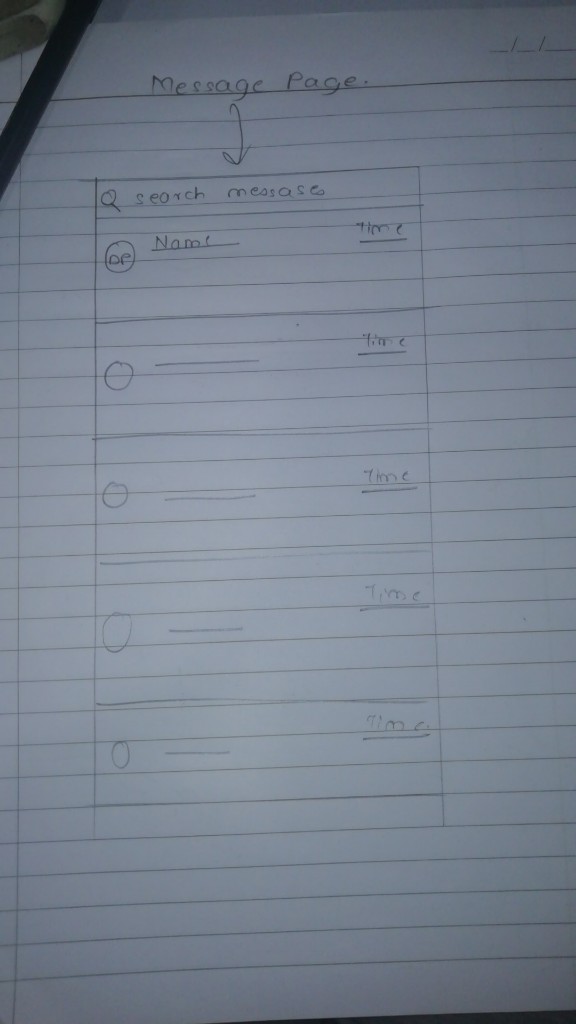 Message Page.
Search messages
DP Name Time
Time
Time
Time
Time